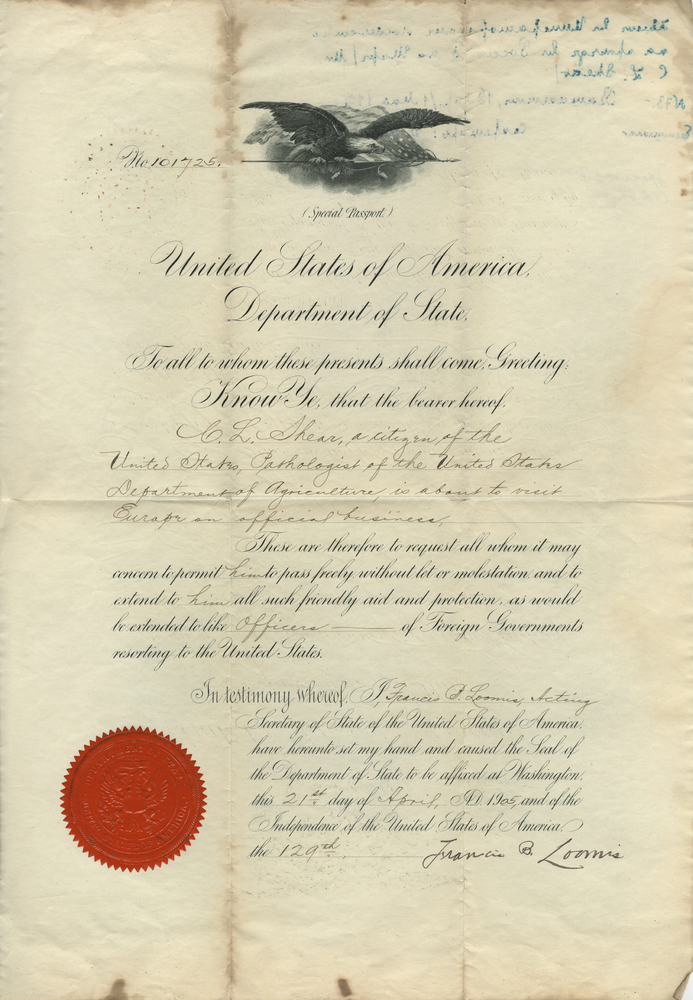 No 101725.
(Special Passport.)
United States of America,
Department of State,
To all to whom these presents shall come, Greeting:
Know Ye, that the bearer hereof,
C. L. Shear, a citizen of the
United States, Pathologist of the United States
Department of Agriculture, is about to visit
Europe on official business,
These are therefore to request all whom it may
concern to permit him to pass freely without let or molestation, and to
extend to him all such friendly aid and protection, as would
be extended to like Officers of Foreign Governments
resorting to the United States.
In testimony whereof, I, Francis B. Loomis, Acting
Secretary of State of the United States of America,
have hereunto set my hand and caused the Seal of
the Department of State to be affixed at Washington,
this 21st day of April, A.D. 1905, and of the
Independence of the United States of America,
the 129th.
Francis B. Loomis